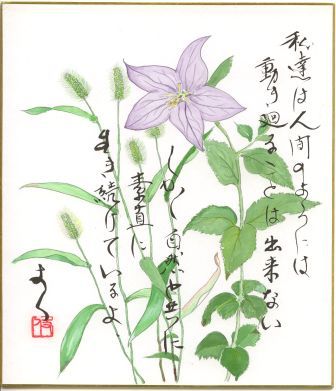 私達は人間のようには
動き廻ることは出来ない
しかし自然や土に
素直に
生き続けているよ